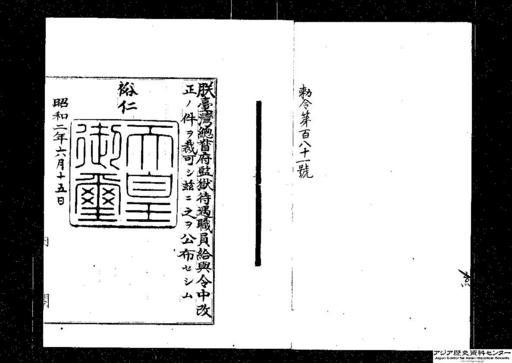 勅令第百八十一號
朕臺灣總督府監獄待遇職員給與令中改
正ノ件ヲ裁可シ茲ニ之ヲ公布セシム
裕仁
天皇
御璽
昭和二年六月十五日
内閣
アジア歴史資料センター
Japan Center for Asian Historical Records